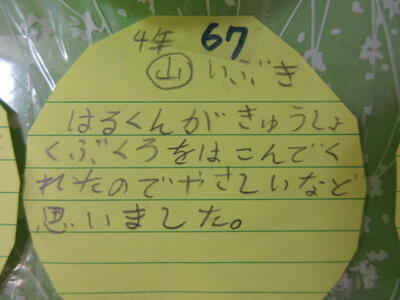 4年 67
山 いぶき
はるくんがきゅうしょ
くぶくろをはこんでく
れたのでやさしいなと
思いました。